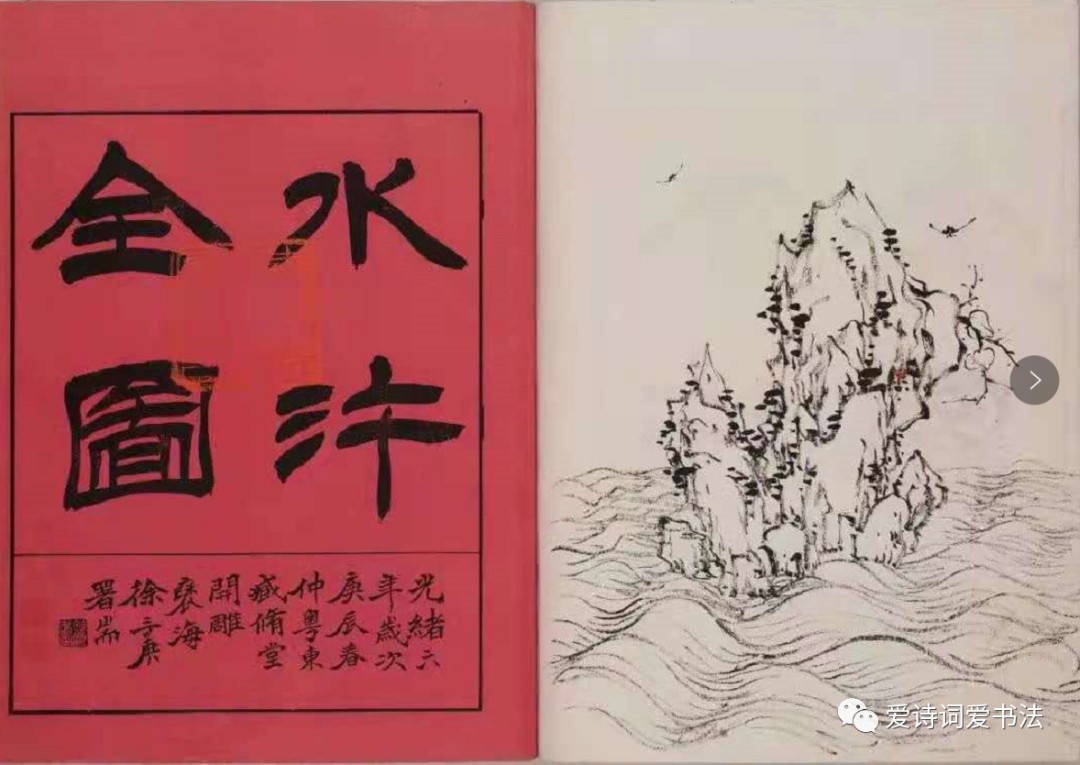 水汻
全圖
光緒六
年歲次
庚辰春
仲粵東
臧脩堂
開雕
褎海
徐三庚
署耑
爱诗词爱书法